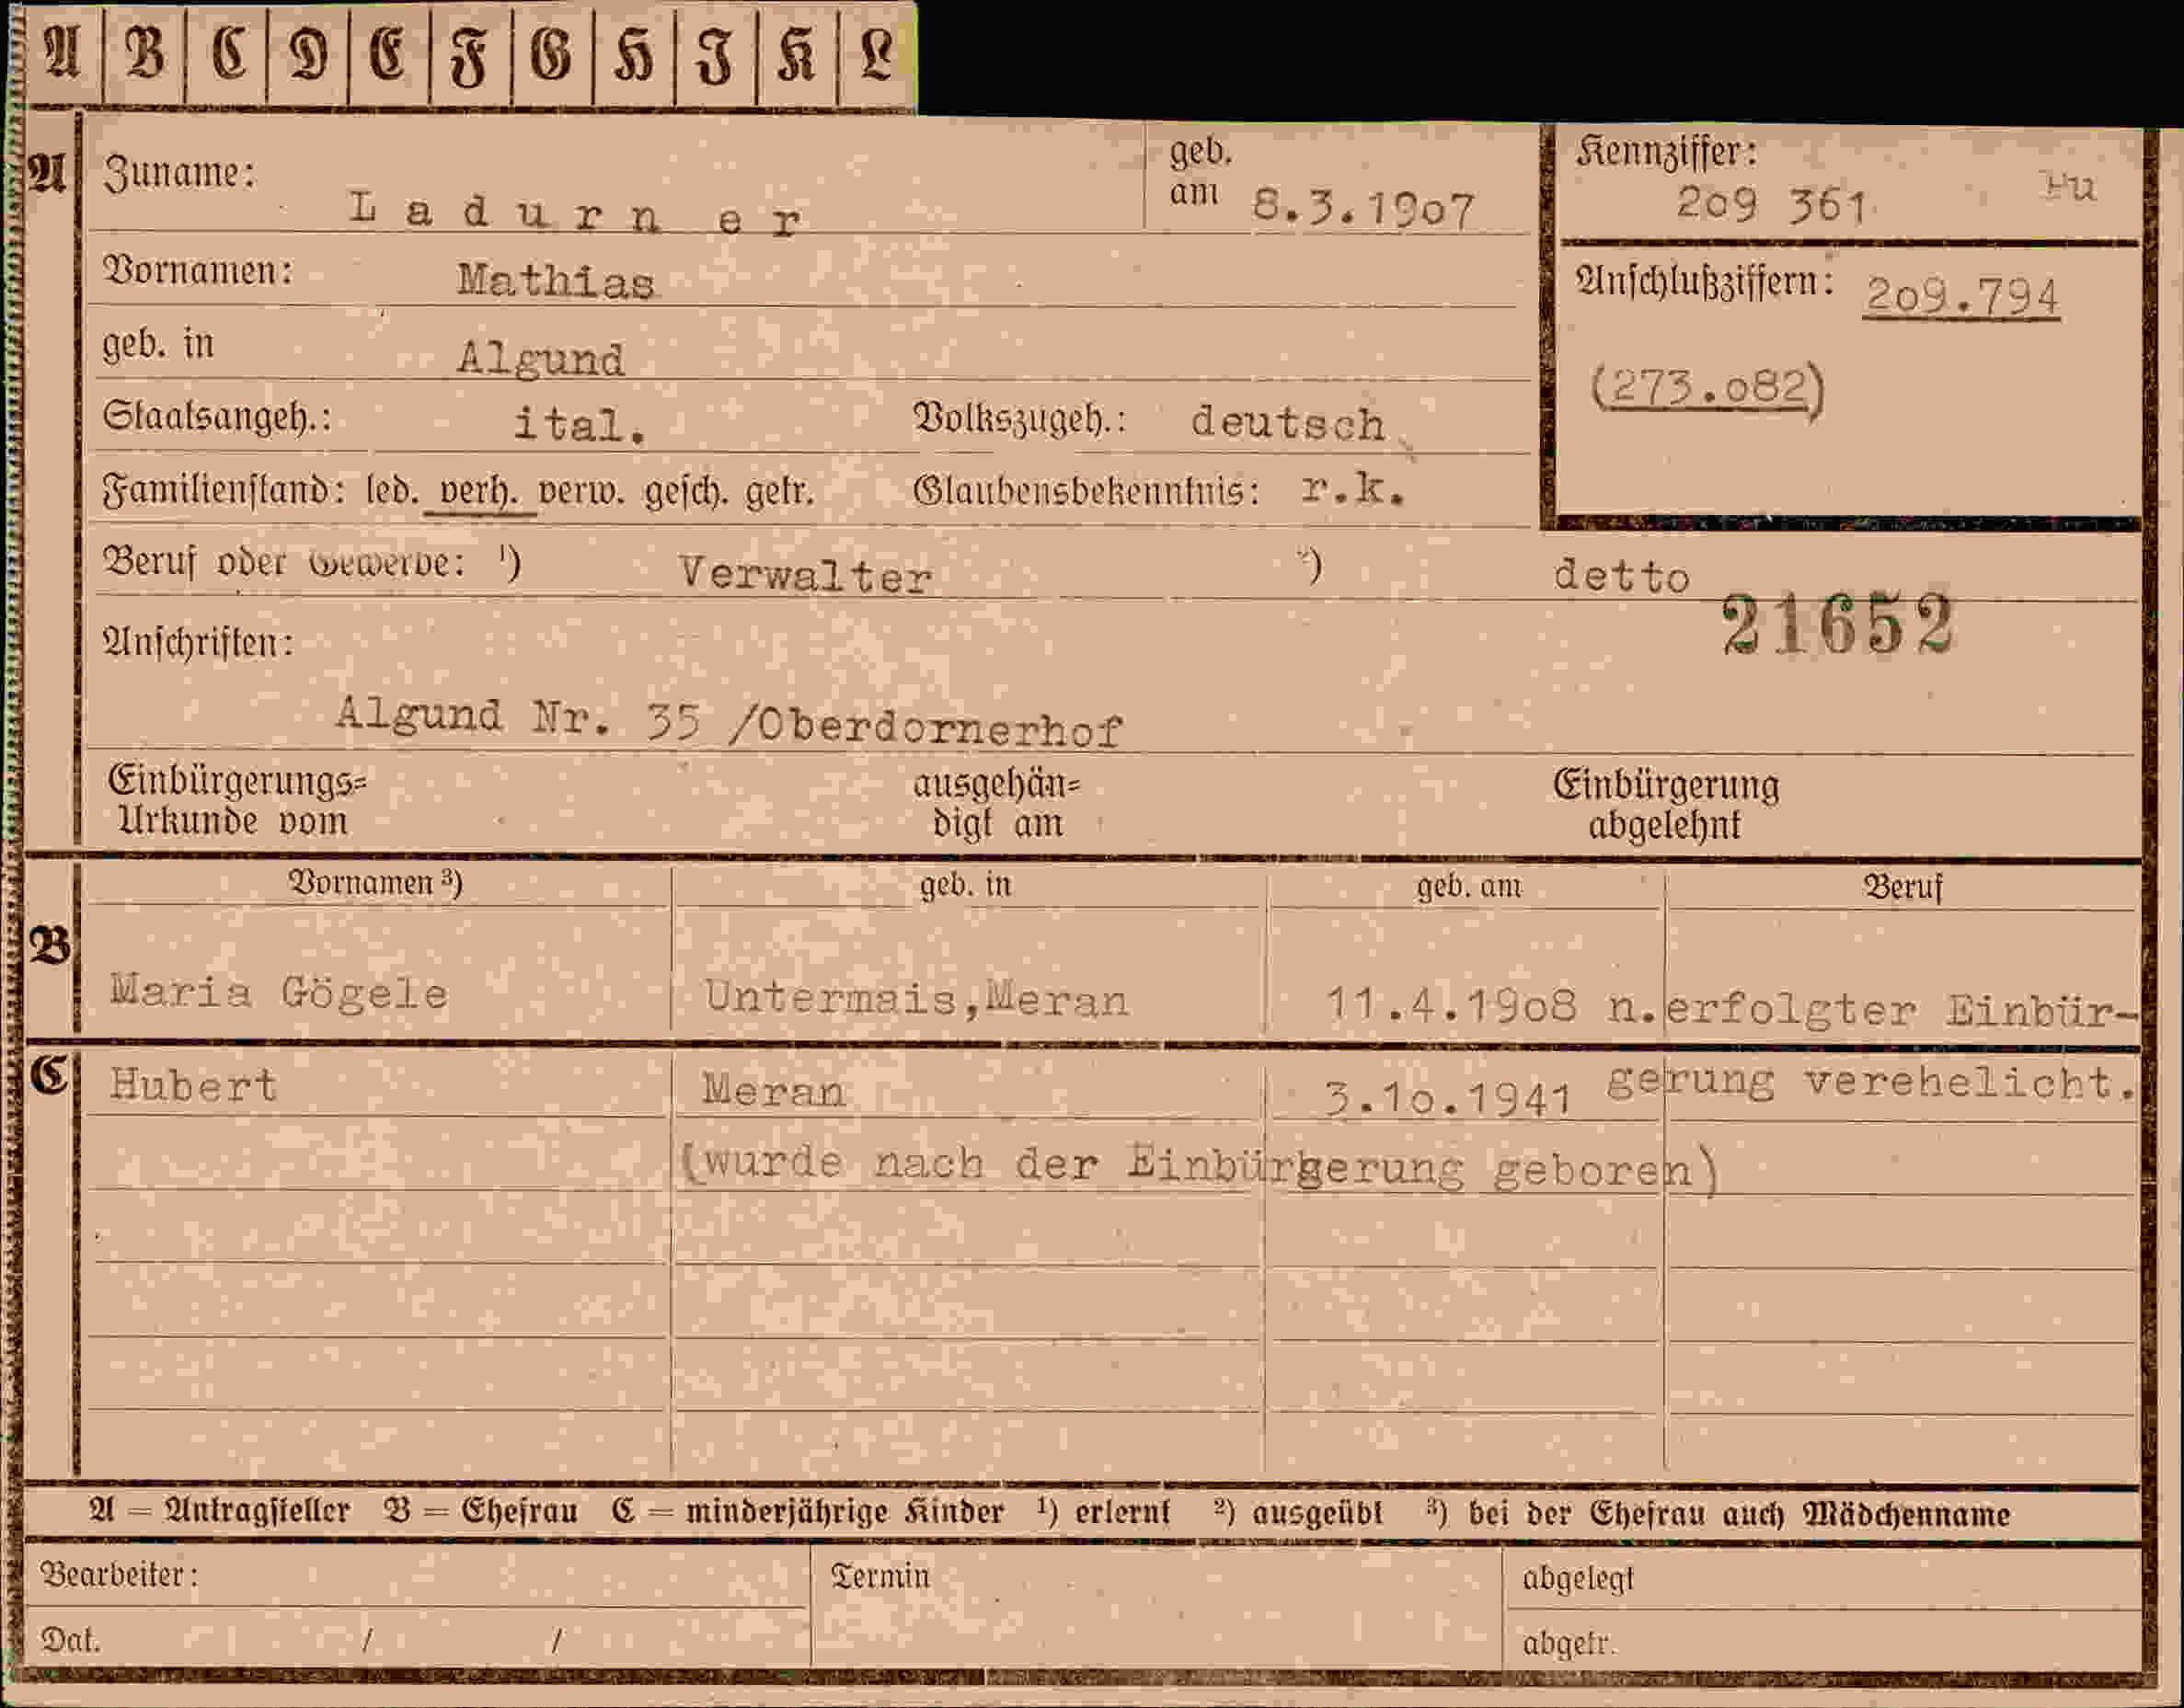 A B C D E F G H I K L
A Zuname: Ladurner geb. am 8.3.1907 Kennziffer: 209 361
Vornamen: Mathias Anschlußziffern: 209.794
geb. in Algund (273.082)
Staatsangeh.: ital. Volkszugeh.: deutsch
Familienstand: led. verh. verw. gesch. getr. Glaubensbekenntnis: r.k.
Beruf oder Gewerbe: 1) Verwalter 2) detto
21652
Anschriften:
Algund Nr. 35 /Oberdornerhof
Einbürgerungs= ausgehän= Einbürgerung
Urkunde vom digt am abgelehnt
Vornamen 3) geb. in geb. am Beruf
B
Maria Gögele Untermais,Meran 11.4.1908 n.erfolgter Einbür-
C Hubert Meran 3.10.1941 gerung verehelicht.
(wurde nach der Einbürgerung geboren)
A = Antragsteller B = Ehefrau C = minderjährige Kinder 1) erlernt 2) ausgeübt 3) bei der Ehefrau auch Mädchenname
Bearbeiter: Termin abgelegt
Dat. / / abgetr.